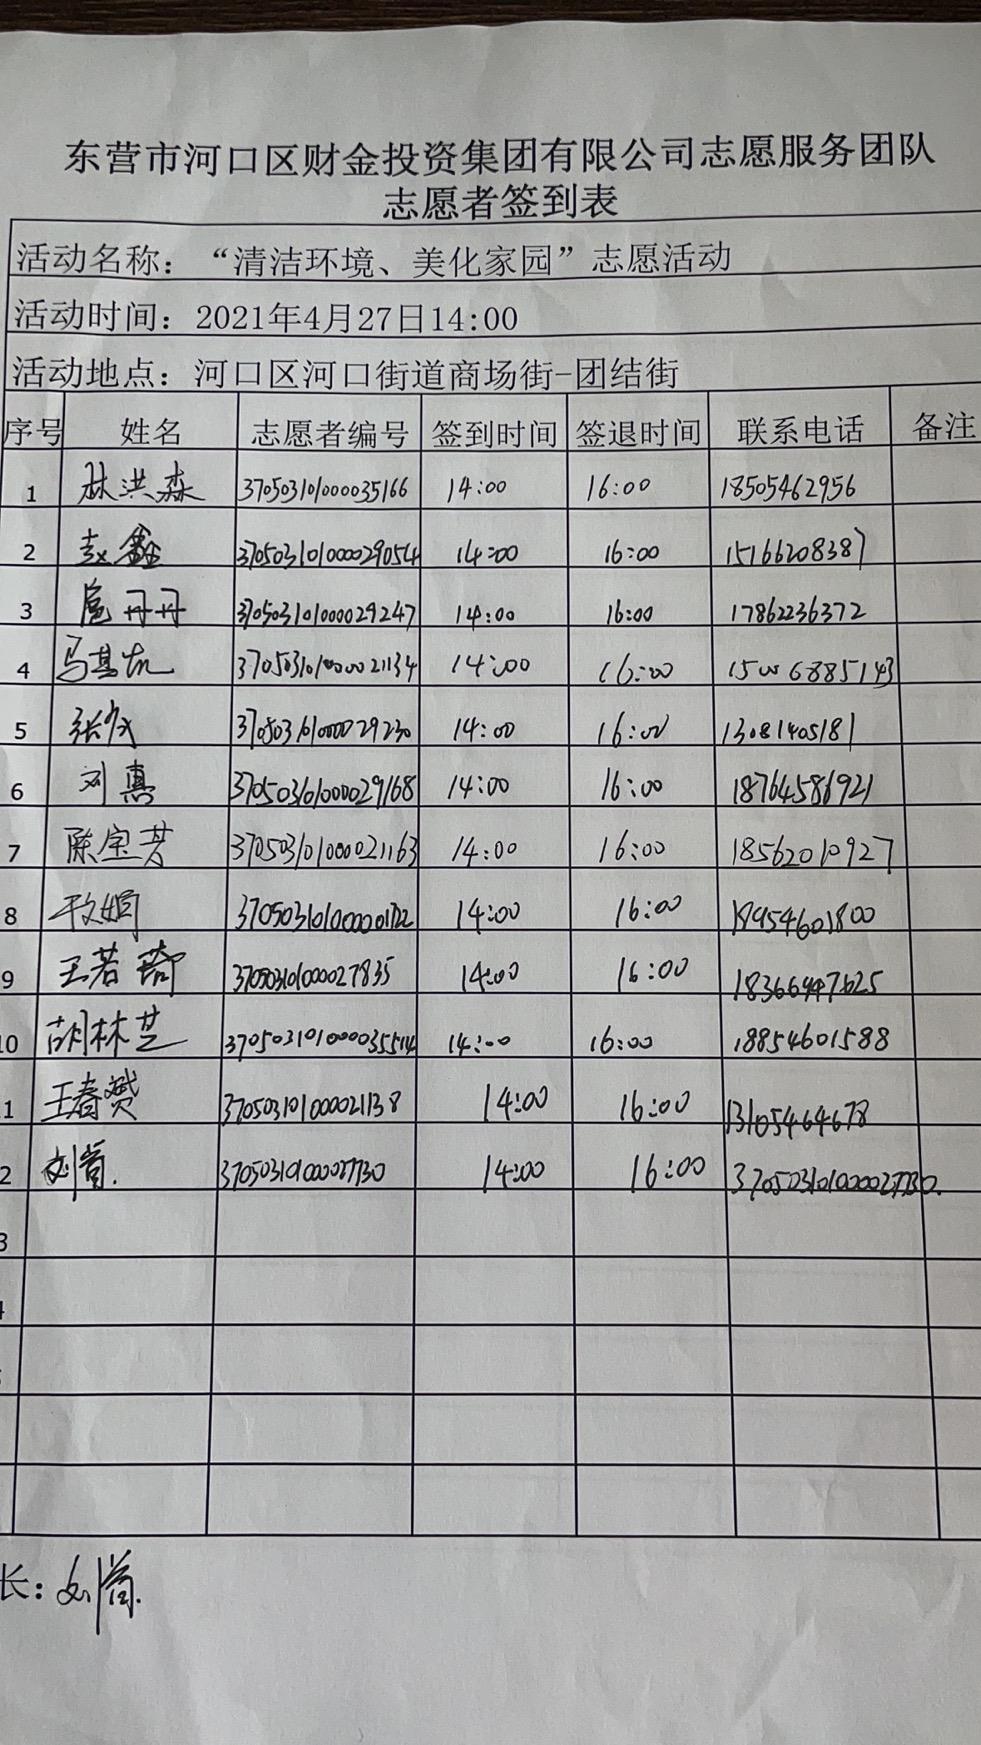 东营市河口区财金投资集团有限公司志愿服务团队
志愿者签到表
活动名称：“清洁环境、美化家园”志愿活动
活动时间：2021年4月27日14:00
活动地点：河口区河口街道商场街-团结街
序号 姓名 志愿者编号 签到时间 签退时间 联系电话 备注
1 林洪森 370503101000035166 14:00 16:00 18505462956
2 赵鑫 370503101000029054 14:00 16:00 15166208387
3 扈丹丹 370503101000029247 14:00 16:00 17862236372
4 马其凯 370503101000021134 14:00 16:00 15006885143
5 张成 14:00 16:00 13081405181
6 刘惠 370503101000029168 14:00 16:00 18764586921
7 陈宝芳 370503101000021163 14:00 16:00 18562010927
8 14:00 16:00 19954601800
9 王若琦 370503101000027835 14:00 16:00
10 胡林芝 370503101000035514 14:00 16:00 18854601588
11 王春赟 370503101000021138 14:00 16:00 13105464678
12 刘 14:00 16:00
3
长：刘